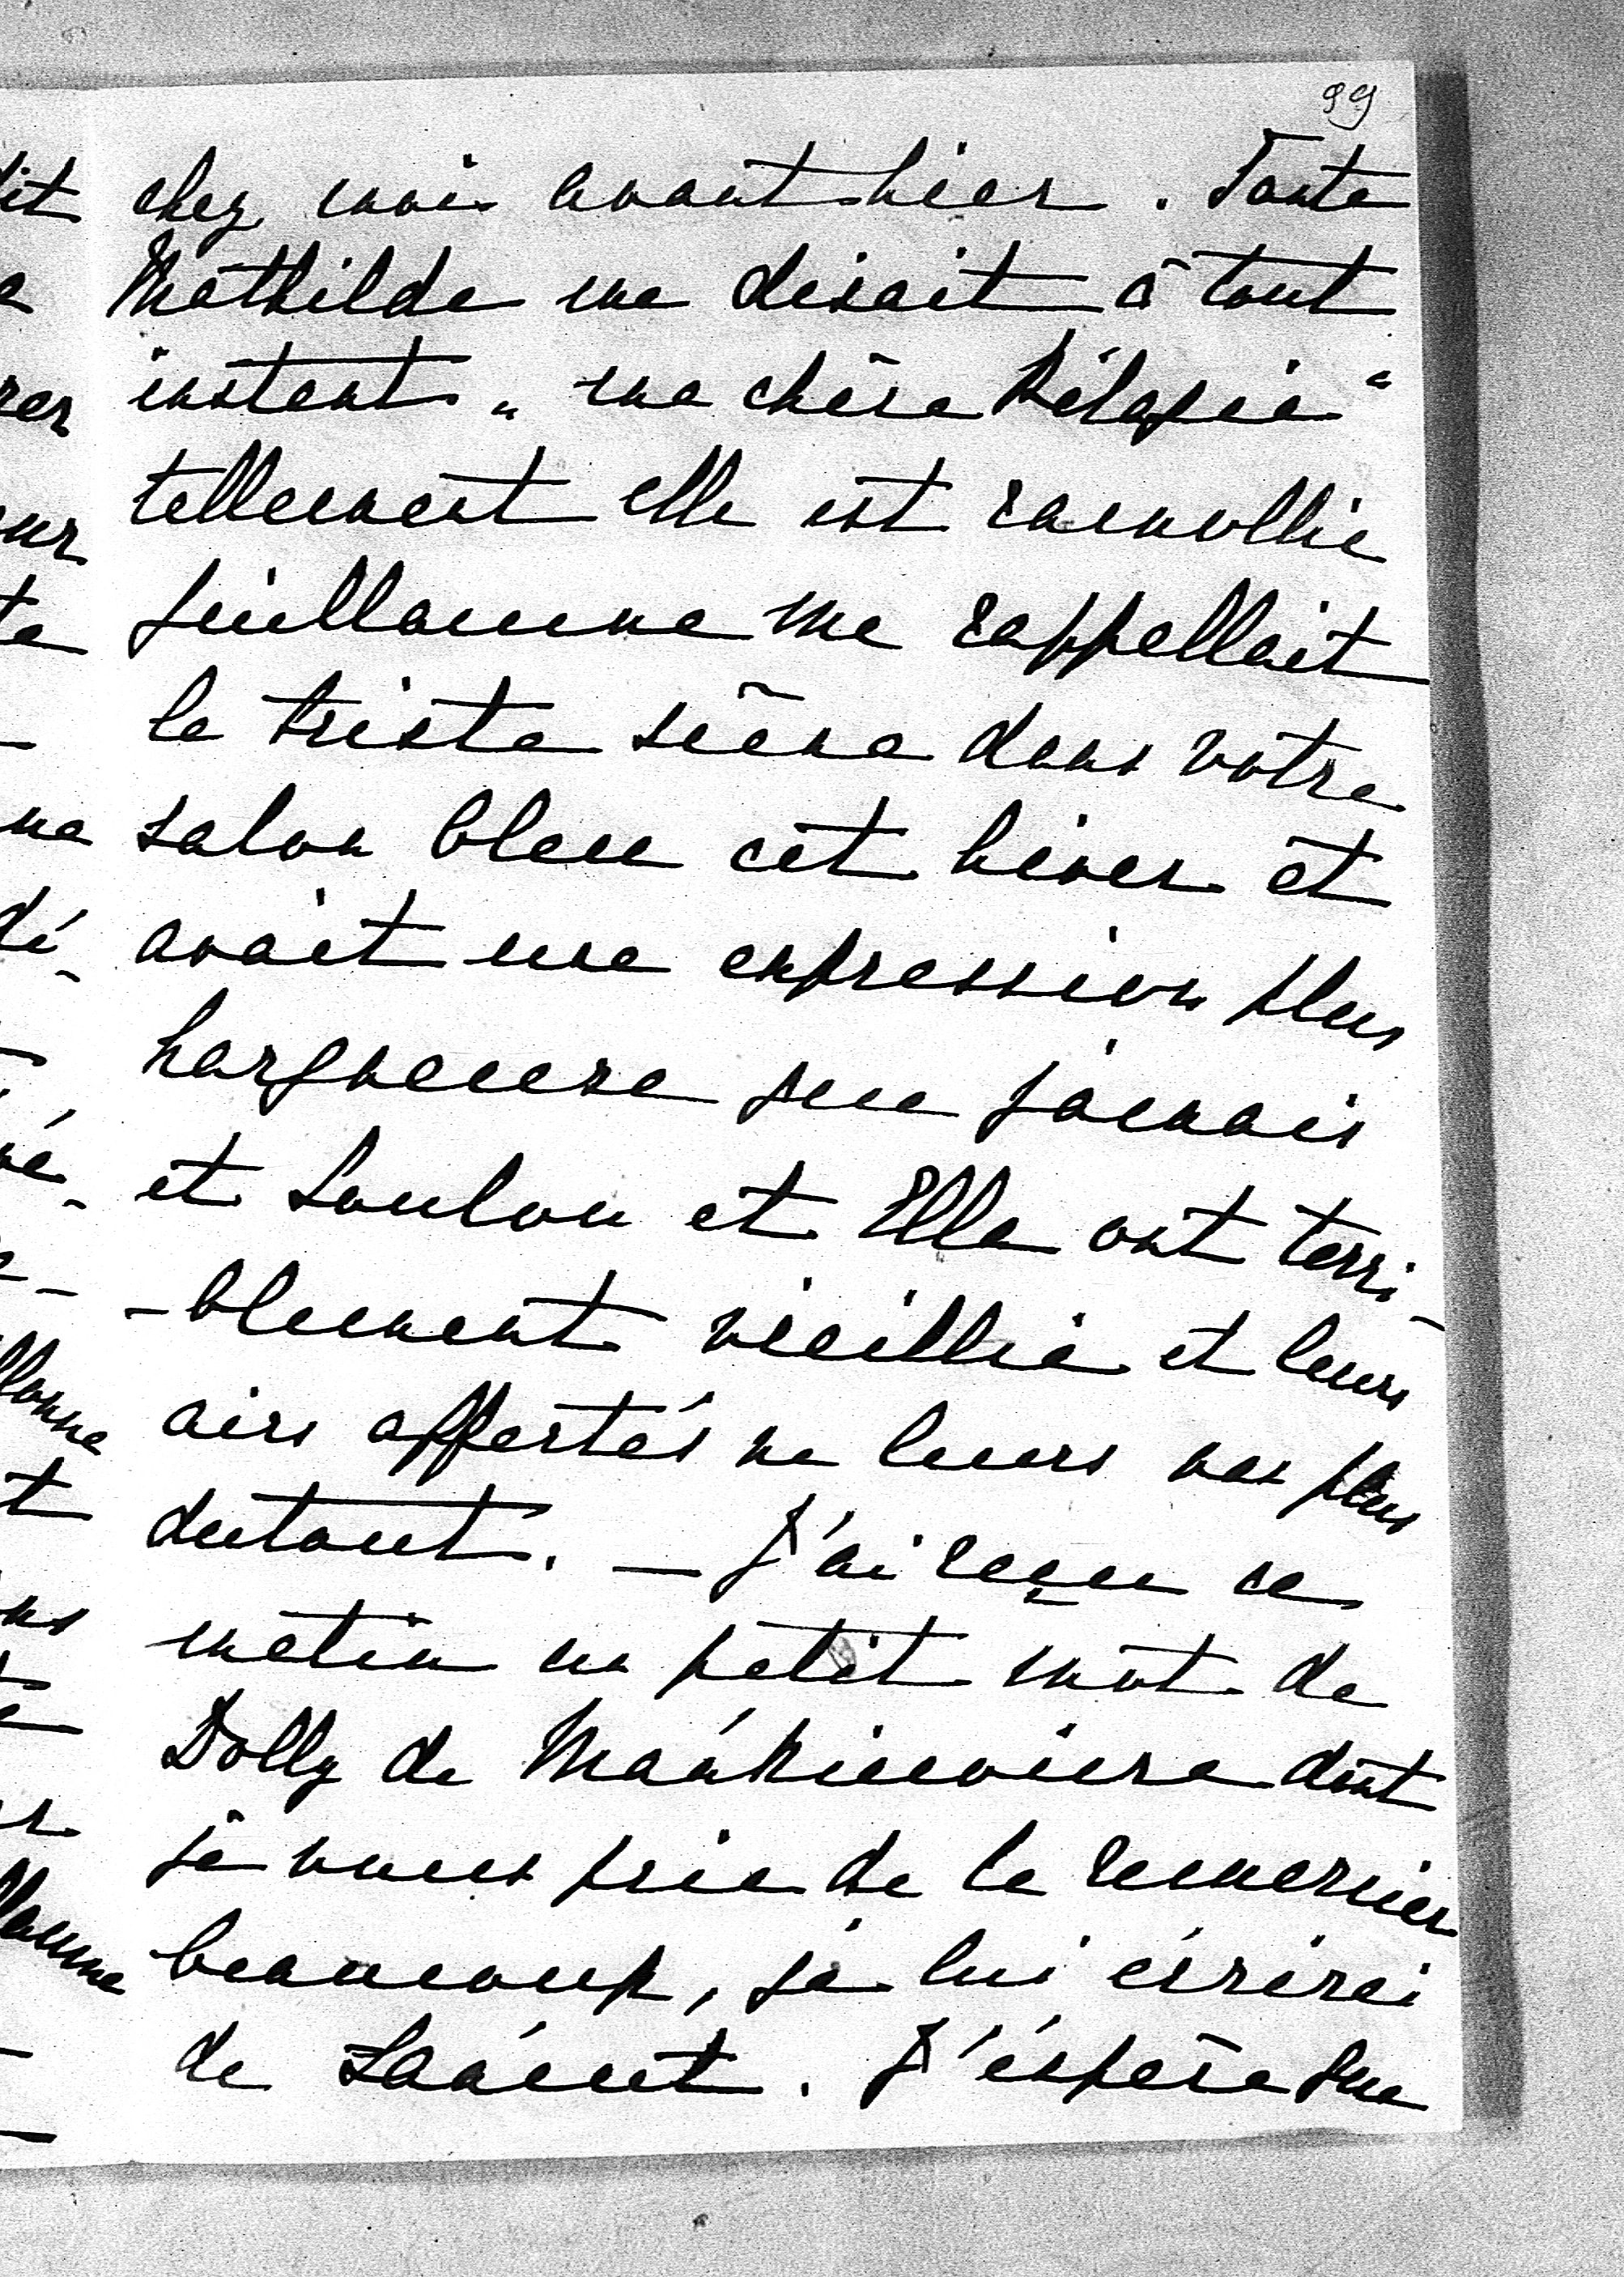 99
chez moi avant-hier. Tante
Mathilde me disait à tout
instant „ ma chère Pélagie "
tellement elle est ramollie
Guillaume me rappellait
la triste scène dans votre
salon bleu cet hiver et
avait une expression plus
hargneuse que jamais
et Loulou et Ella ont terri-
-blement vieilli et leurs
airs affectés ne leurs vas plus
dutout. — J'ai reçu ce
matin un petit mot de
Dolly de dont
je vous prie de la remercier
beaucoup, je lui écrirai
de. J'éspère que